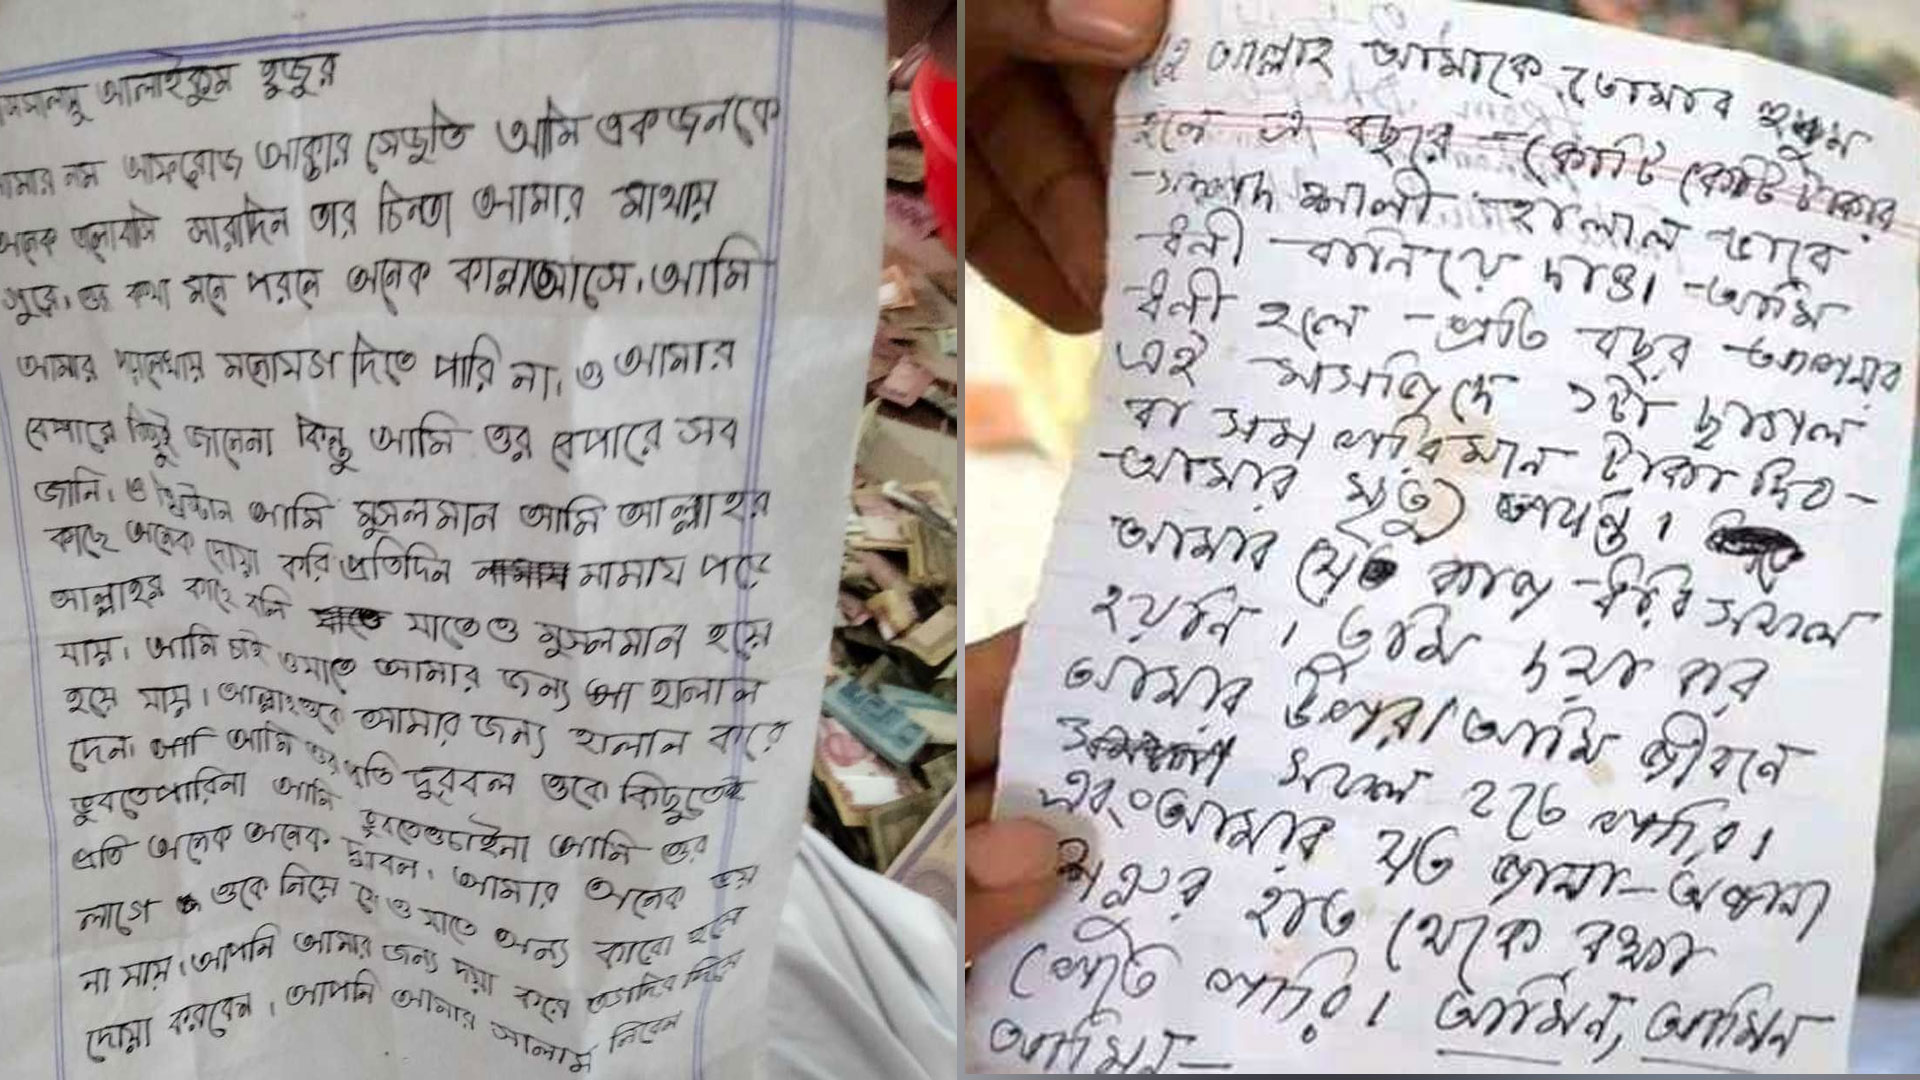 আলাইকুম হুজুর
নাম আফরোজ আক্তার সেজুতি আমি একজনকে
অনেক ভলোবাসি সারাদিন তার চিনতা আমার মাথায়
গুরে। ওর কথা মনে পরলে অনেক কান্নাআসে। আমি
আমার দিতে পারি না। ও আমার
বেপারে কিছুই জানেনা কিন্তু আমি ওর বেপারে সব
জানি। ও খ্রিষ্টান আমি মুসলমান আমি আল্লাহর
কাছে অনেক দোয়া করি প্রতিদিন নামায পড়ে
আল্লাহর কাছে বলি যাতেও মুসলমান হয়ে
যায়। আমি চাই ওযাতে আমার জন্য হালাল
হয়ে যায়। আল্লাহওকে আমার জন্য হালাল করে
দেন। আমি ওর প্রতি দুরবল ওকে কিছুতেই
ভুবতেপারিনা আমি ভুবতেওচাইনা আমি ওর
প্রতি অনেক অনেক দুরবল। আমার অনেক ভয়
লাগে ওকে নিয়ে ও যাতে অন্য কারো হয়ে
না যায়। আপনি আমার জন্য দয়া করে
দোয়া করবেন। আপনি আমার আলাম নিবেন
হে আল্লাহ আমাকে তোমার হুকুম
হলে এ বছরে কোটি কোটি টাকার
সম্পদ শালী হালাল ভাবে
ধনী বানিয়ে দাও। আমি
ধনী হলে প্রতি বছর আপনার
এই মসজিদে ১টা ছাগল
বা সম পরিমান টাকা দিব
আমার মৃত্যু পযর্ন্ত।
আমার কোন কাজ সফল
হয়নি। তুমি দয়া কর
আমার উপর। আমি জীবনে
সফল হতে পারি।
এবং আমার যত জানা-অজানা
শত্রুর হাত থেকে রক্ষা
পেতে পারি। আমিন, আমিন
আমিন